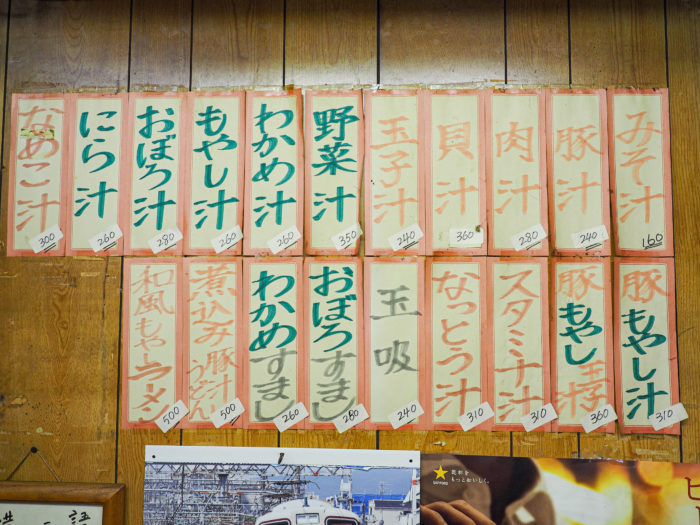 みそ汁
160
豚汁
240
肉汁
280
貝汁
360
玉子汁
240
野菜汁
350
わかめ汁
260
もやし汁
260
おぼろ汁
280
にら汁
260
なめこ汁
300
豚もやし汁
310
豚もやし玉子汁
360
スタミナ汁
310
なっとう汁
310
玉吸
240
おぼろすまし
280
わかめすまし
260
煮込み豚汁うどん
500
和風もやしラーメン
500
SAPPORO
乾杯を
もっとおいしく。